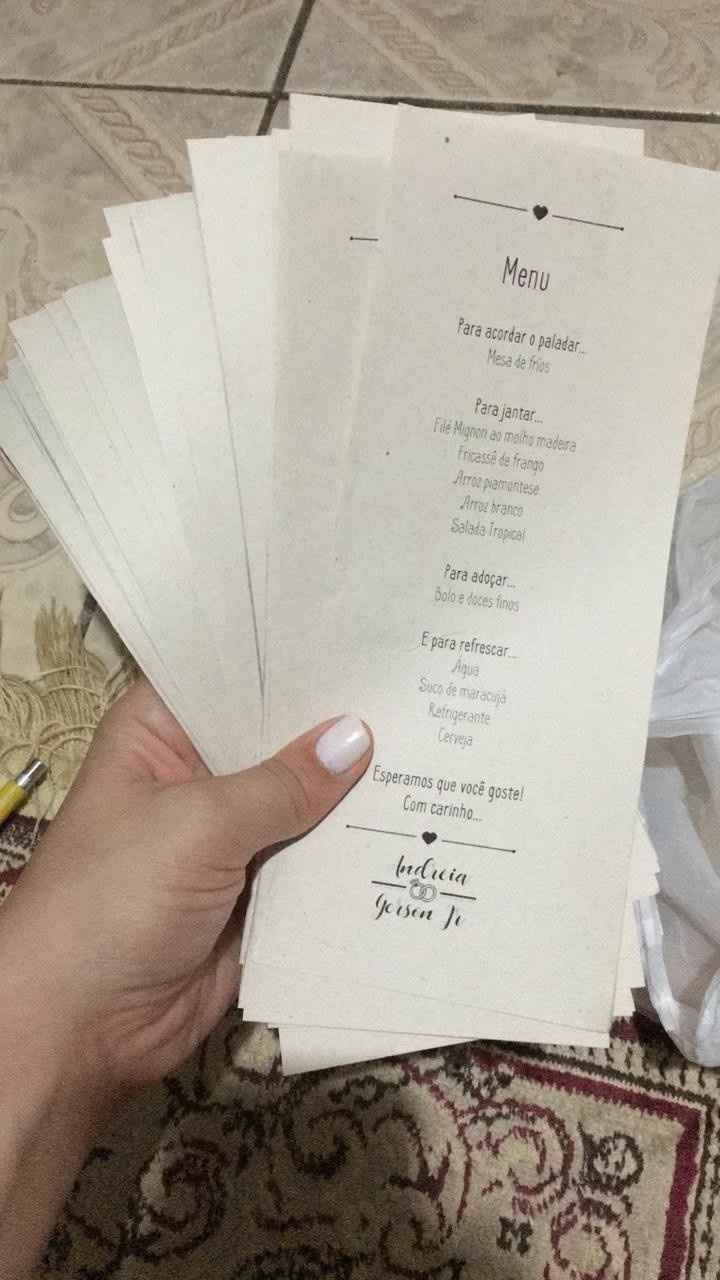 Menu
Para acordar o paladar...
Mesa de frios
Para jantar...
Filé Mignon ao molho madeira
Fricassê de frango
Arroz piamontese
Arroz branco
Salada Tropical
Para adoçar...
Bolo e doces finos
E para refrescar...
Água
Suco de maracujá
Refrigerante
Cerveja
Esperamos que você goste!
Com carinho...
Andreia
Gerson Jr
M